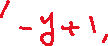 ' - y + 1,